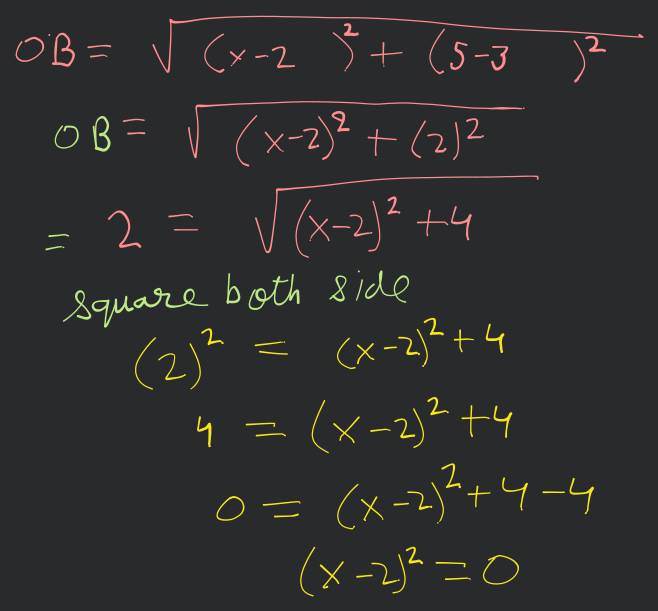 OB = √(x-2)² + (5-3)²
OB = √(x-2)² + (2)²
= 2 = √(x-2)² + 4
square both side
(2)² = (x-2)² + 4
4 = (x-2)² + 4
0 = (x-2)² + 4 - 4
(x-2)² = 0